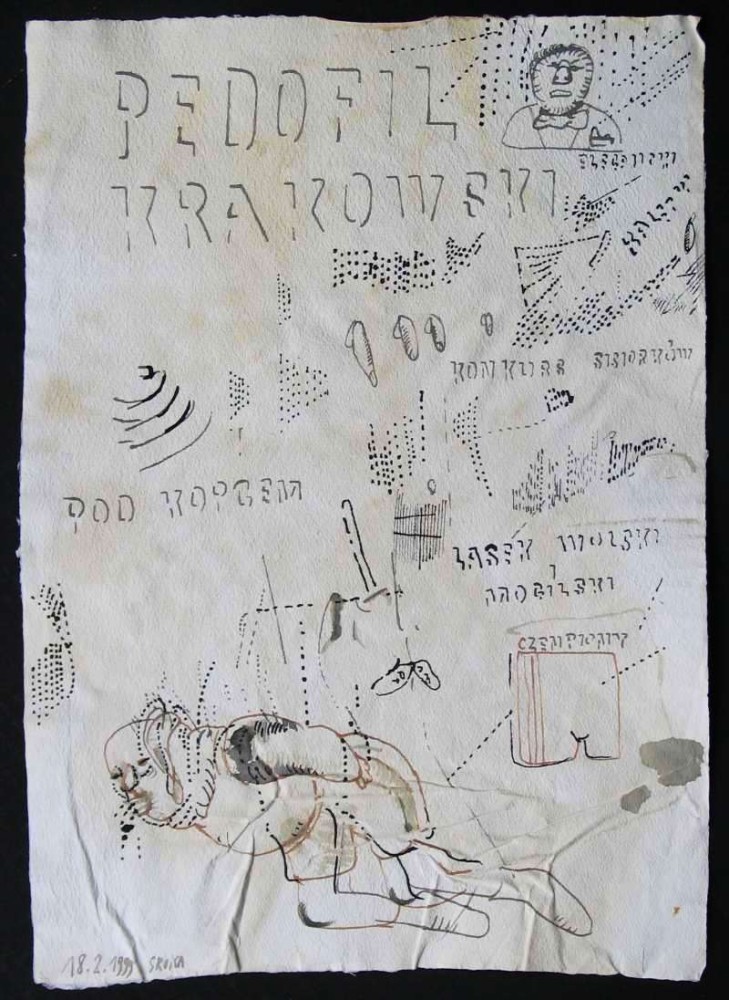 PEDOFIL
KRAKOWSKI
KONKURS SISIORKÓW
POD KOPCEM
LASEK WOLSKI
I
MOGILSKI
CZEMPIONIY
18.2.1999